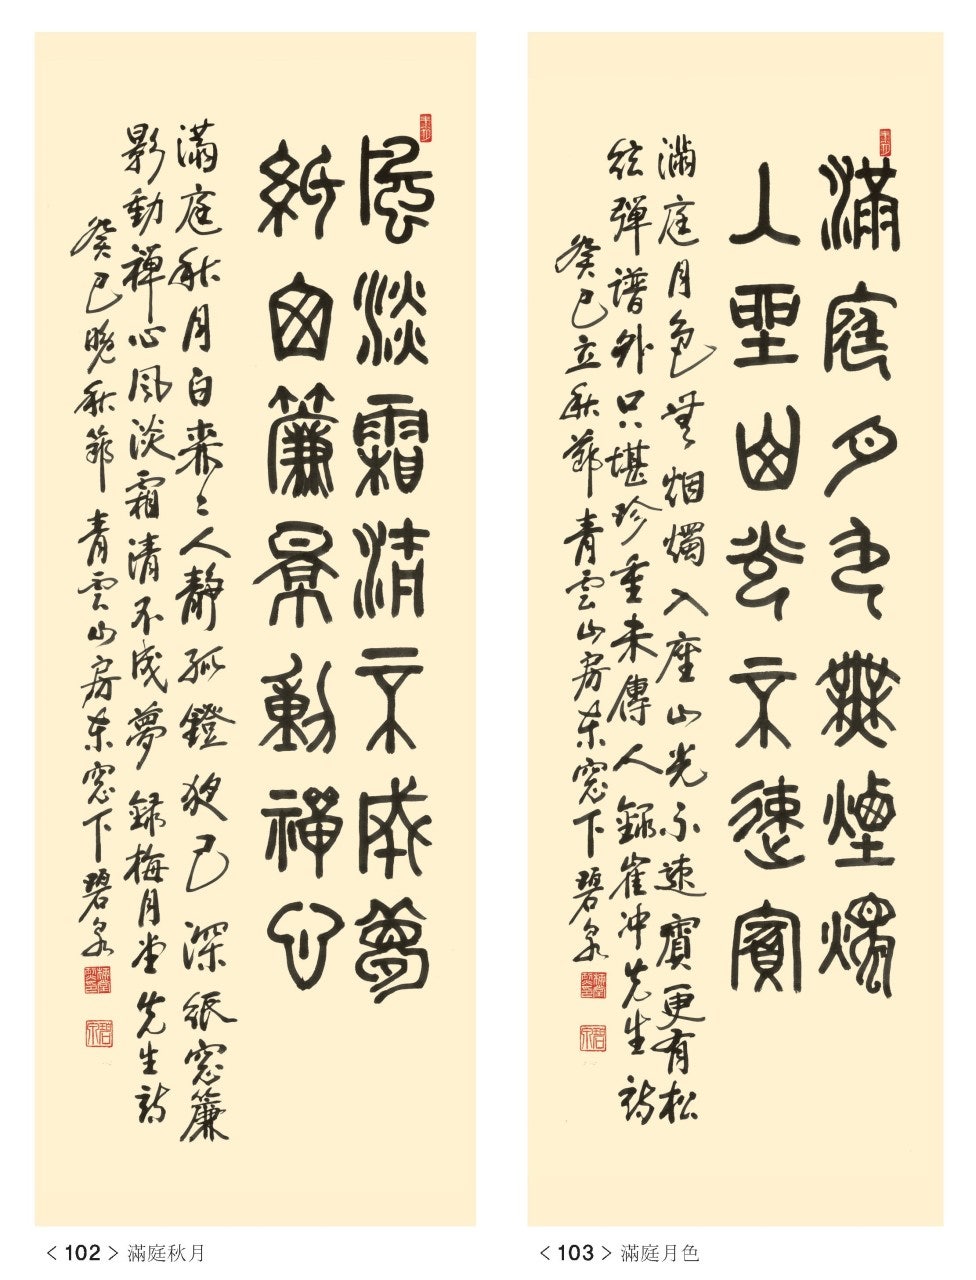 風淡霜清不成夢
紙囱簾景動禪心
滿庭秋月白森〻人靜孤鐙夜已深紙窓簾
影動禪心風淡霜清不成夢 錄梅月堂先生詩
癸巳晚秋節 青雲山房東窓下 碧泉
碧泉
<102> 滿庭秋月
滿庭月色無煙燭
入座山光不速賓
滿庭月色無烟燭入座山光不速賓更有松
絃彈譜外只堪珍重未傳人 錄崔冲先生詩
癸巳立秋節 青雲山房東窓下 碧泉
碧泉
<103> 滿庭月色